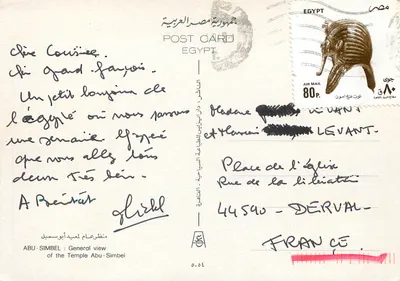 جمهورية مصر العربية
POST CARD
EGYPT
EGYPT
مصر
AIR MAIL
80 P.
٨٠
Chère Cousine.
Cher grand François.
Un petit bonjour de
l'égypte où nous passons
une semaine. J'espère
que vous allez tous
deux très bien.
A Bientôt
Madame LEVANT
et Monsieur LEVANT.
Place de l'église
Rue de la libération
44590 - DERVAL-
FRANCE
منظر عام لمعبد أبو سمبل
ABU-SIMBEL: General view
of the Temple Abu-Simbel